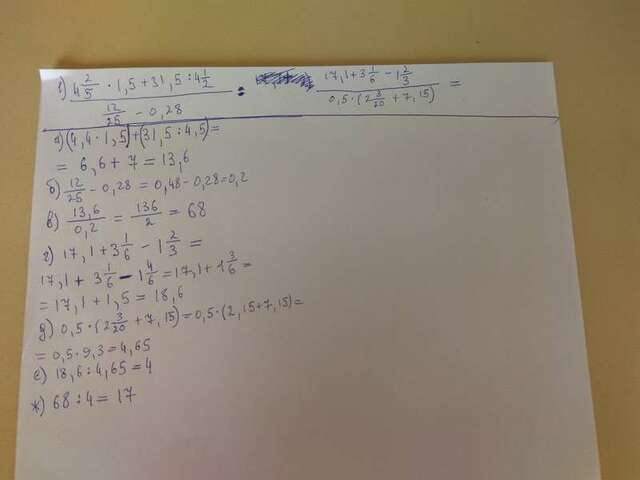 1) (4 2/5 · 1,5 + 31,5 : 4 1/2) / (12/25 − 0,28) : (17,1 + 3 1/6 − 1 2/3) / (0,5 · (2 3/20 + 7,15)) =
а) (4,4 · 1,5) + (31,5 : 4,5) =
= 6,6 + 7 = 13,6
б) 12/25 − 0,28 = 0,48 − 0,28 = 0,2
в) 13,6/0,2 = 136/2 = 68
г) 17,1 + 3 1/6 − 1 2/3 =
17,1 + 3 1/6 − 1 4/6 = 17,1 + 1 3/6 =
= 17,1 + 1,5 = 18,6
д) 0,5 · (2 3/20 + 7,15) = 0,5 · (2,15 + 7,15) =
= 0,5 · 9,3 = 4,65
е) 18,6 : 4,65 = 4
ж) 68 : 4 = 17